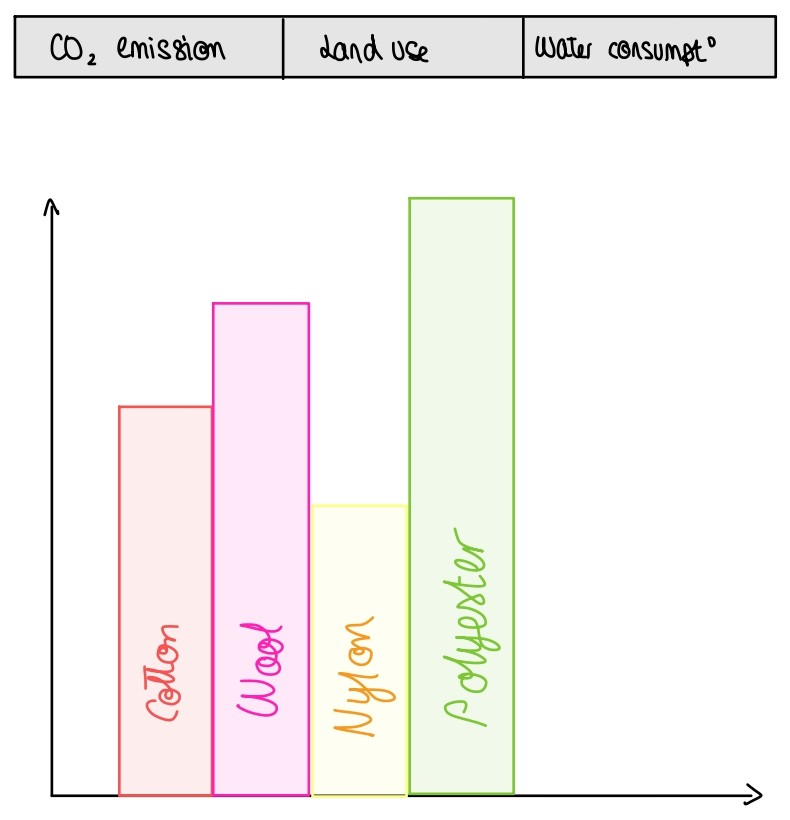 CO₂ emission
Land use
Water consumpt°
Cotton
Wool
Nylon
Polyester